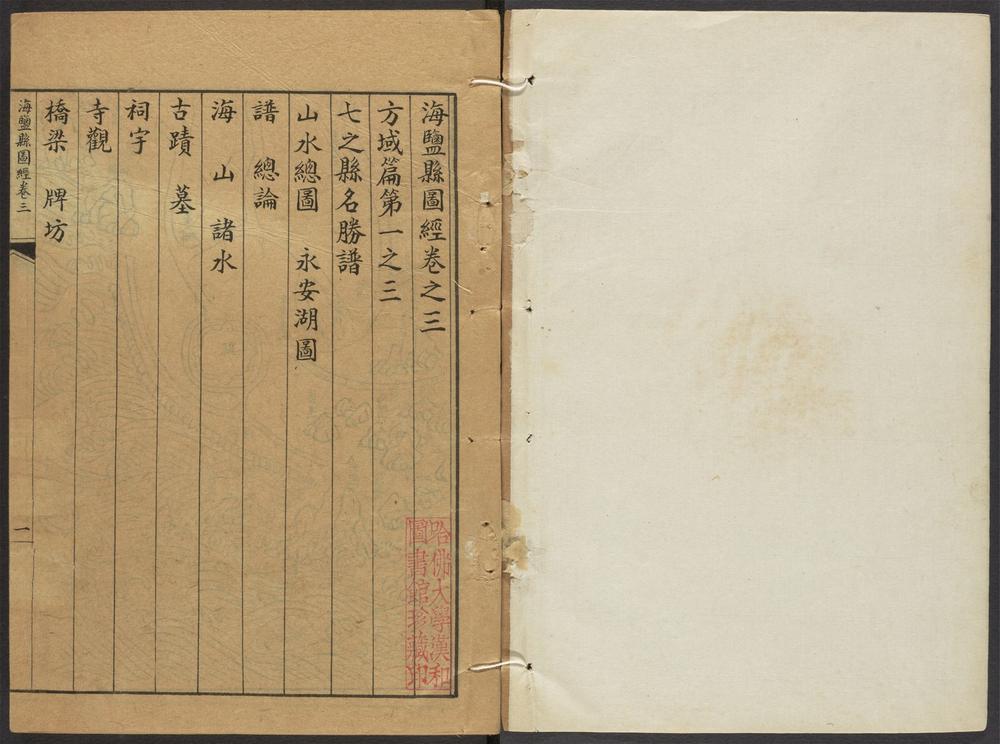 海鹽縣圖經卷之三
方域篇第一之三
七之縣名勝譜
山水總圖 永安湖圖
譜 總論
海 山 諸水
古蹟 墓
祠宇
寺觀
橋梁 牌坊
海鹽縣圖經卷三
一
哈佛大學漢和
圖書館珍藏印